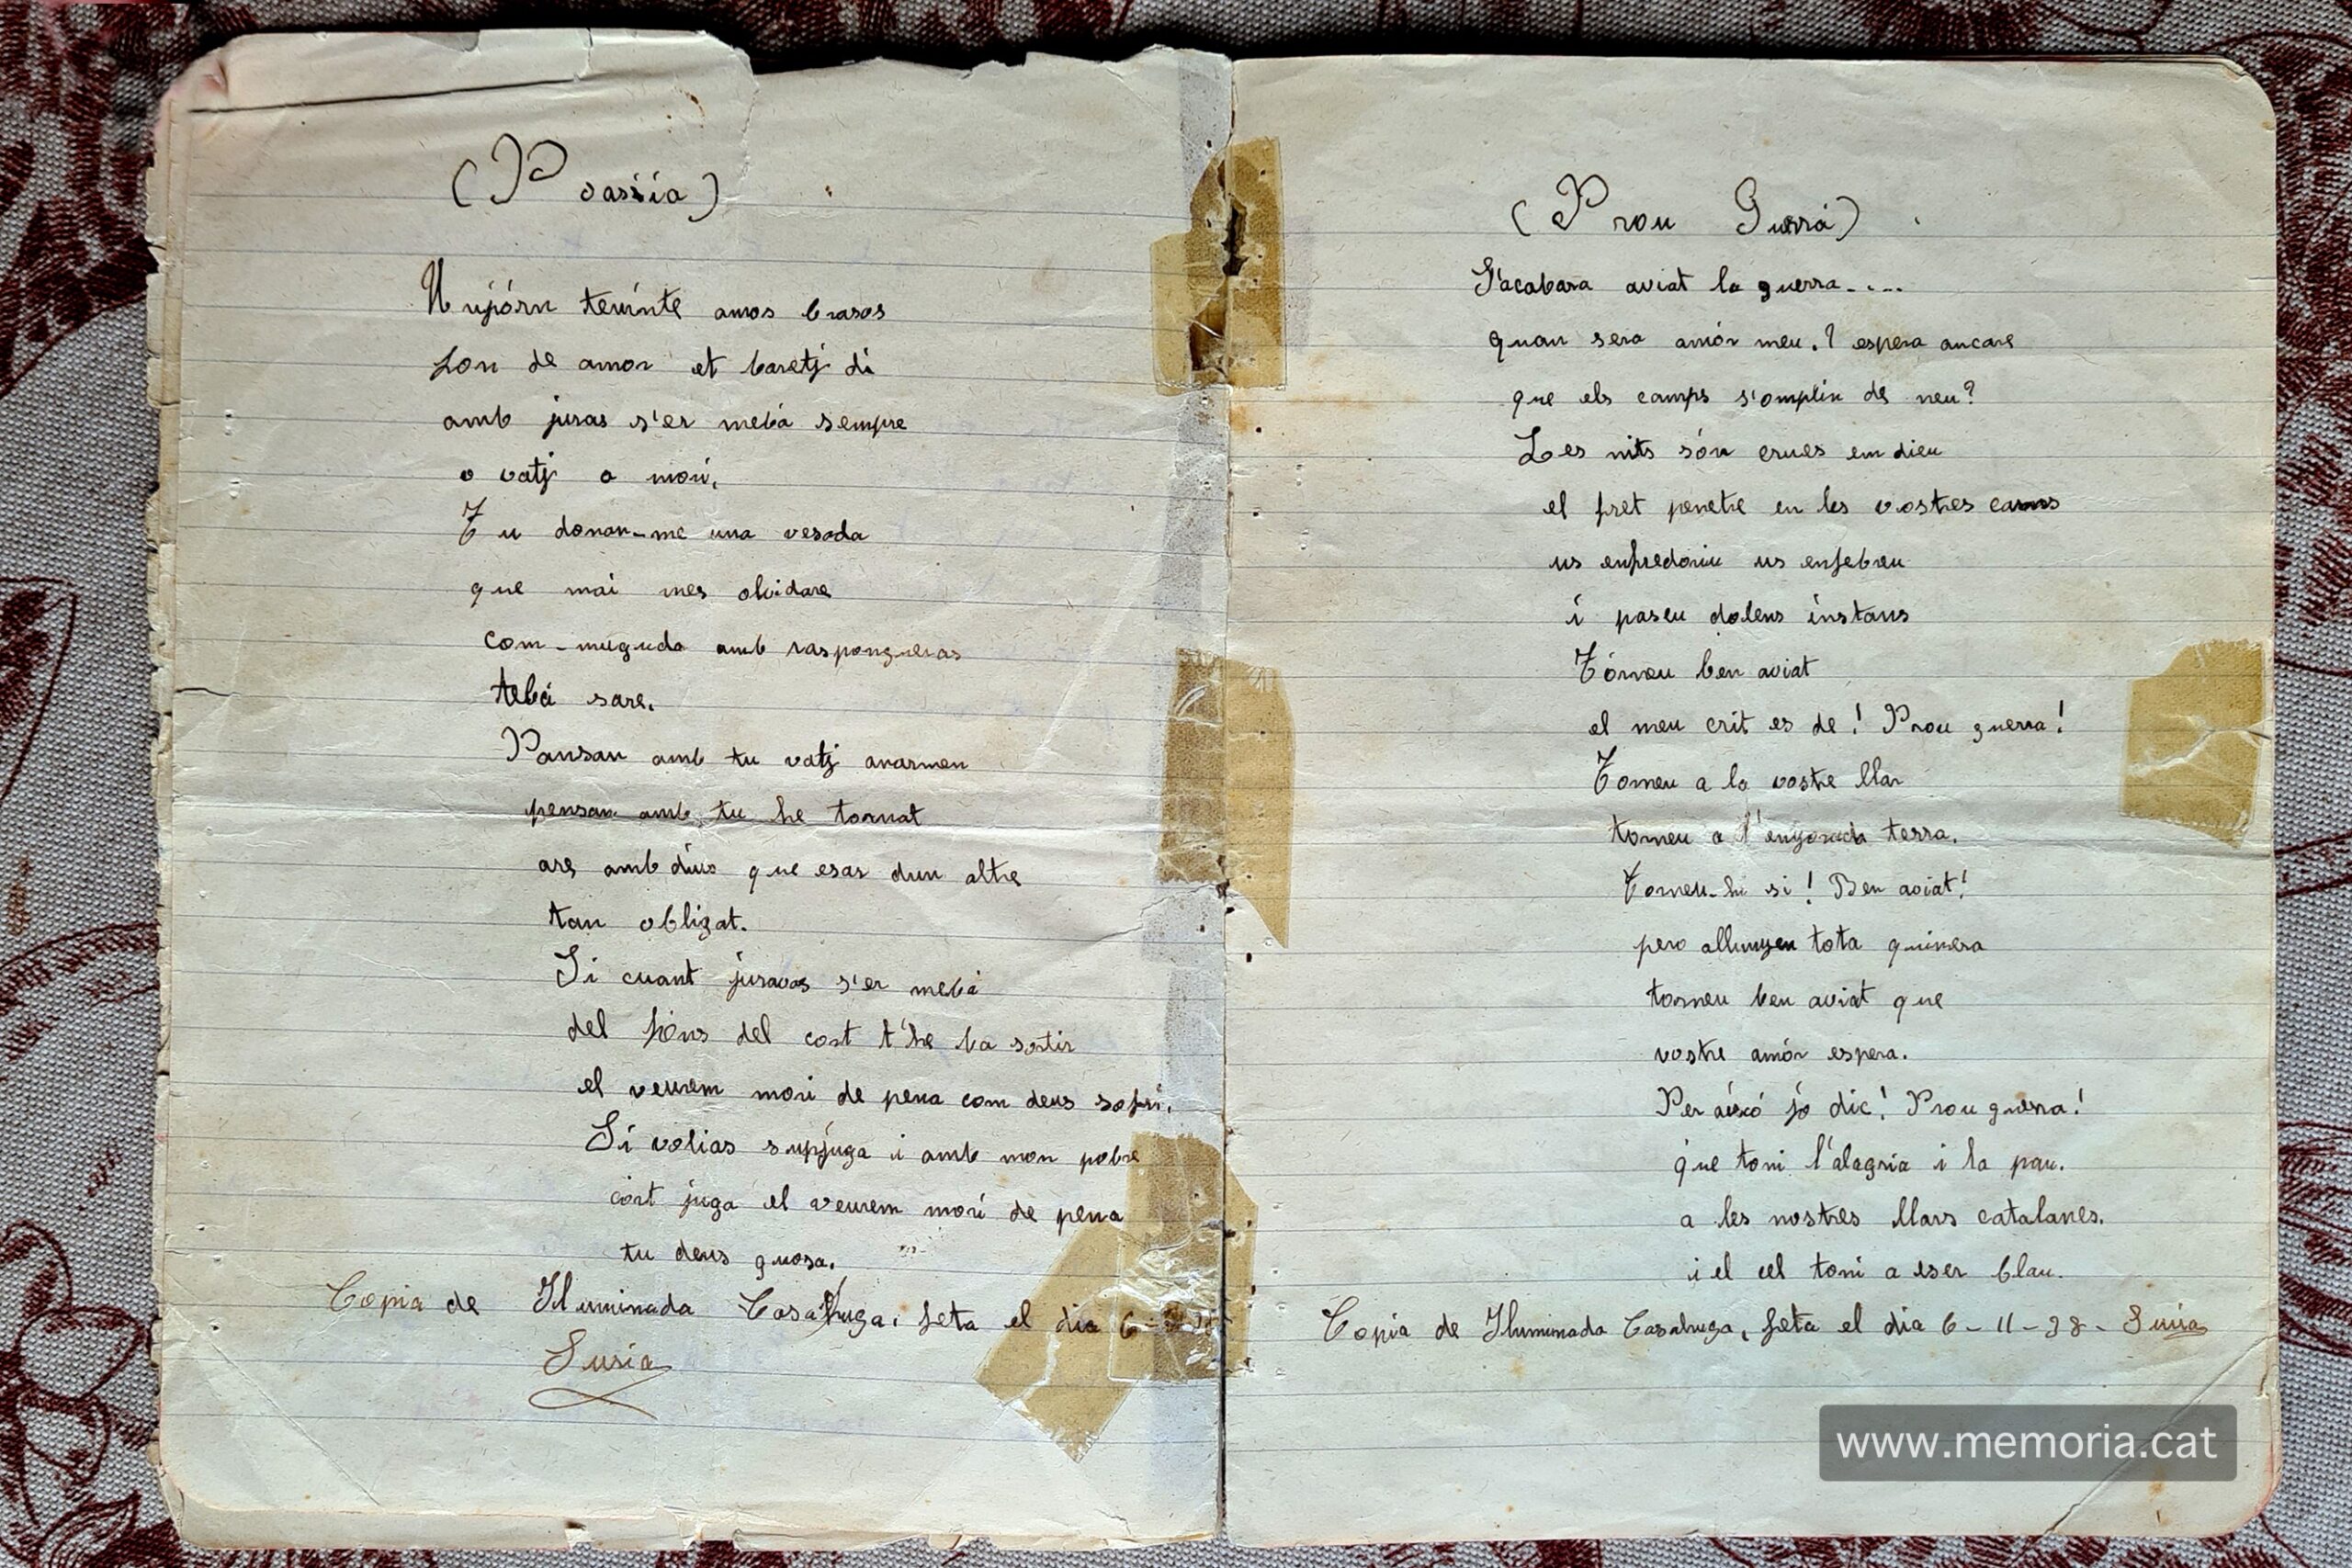 (Poassia)
Unjórn teninte amos brasos
Lon de amor et baretj di
amb juras s'er mebá sempre
o vatj a mori,
Tu donan-me una vesada
que mai mes olvidare
com-muguda amb raspongueras
tebá sare.
Pansan amb tu vatj anarmen
pensan amb tu he tornat
are amb dius que esas dun altre
tan obligat.
Si cuant juravas s'er mebá
del fóns del cort t'he ba sortir
el veurem mori de pena com deus sofri.
Si volias supjuga i amb mon pobre
córt juga el veurem mori de pena
tu deus guosa.
Copia de Iluminada Casahuga, feta el dia 6-
Susia
(Prou Guerrá)
S'acabara aviat la guerra.....
quan sera amór meu.? espera ancare
que els camps s'omplin de neu?
Les nits són crues em dieu
el fret penetre en les vostres carns
us enfredoriu us enfebreu
i paseu dolens instans
Tórneu ben aviat
el meu crit es de! Prou guerra!
Torneu a la vostre llar
torneu a l'enyorada terra.
Torneu-hi si! Ben aviat!
pero allunyeu tota quimera
torneu ben aviat que
vostre amór espera.
Per aixó jo dic! Prou guerra!
que torni l'alagria i la pau.
a les nostres llars catalanes.
i el cel torni a eser blau.
Copia de Iluminada Casahuga, feta el dia 6-11-38- Suria
www.memoria.cat